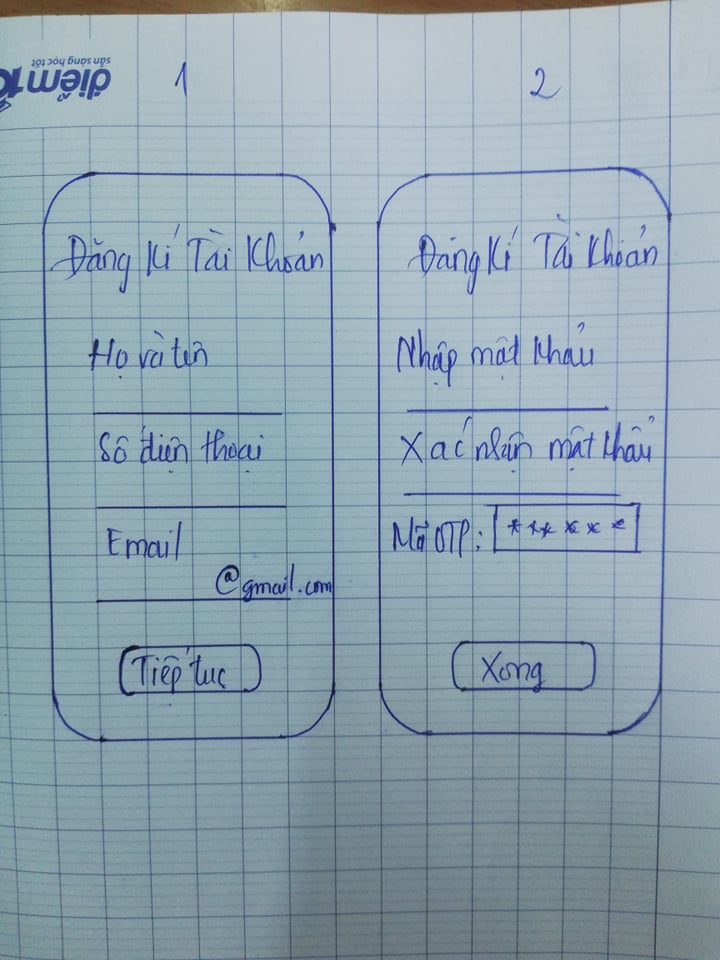 điểm10
sẵn sàng học tốt
1
Đăng kí Tài Khoản
Họ và tên
Số điện thoại
Email
@gmail.com
Tiếp tục
2
Đăng kí Tài khoản
Nhập mật khẩu
Xác nhận mật khẩu
Mã OTP: ******
Xong